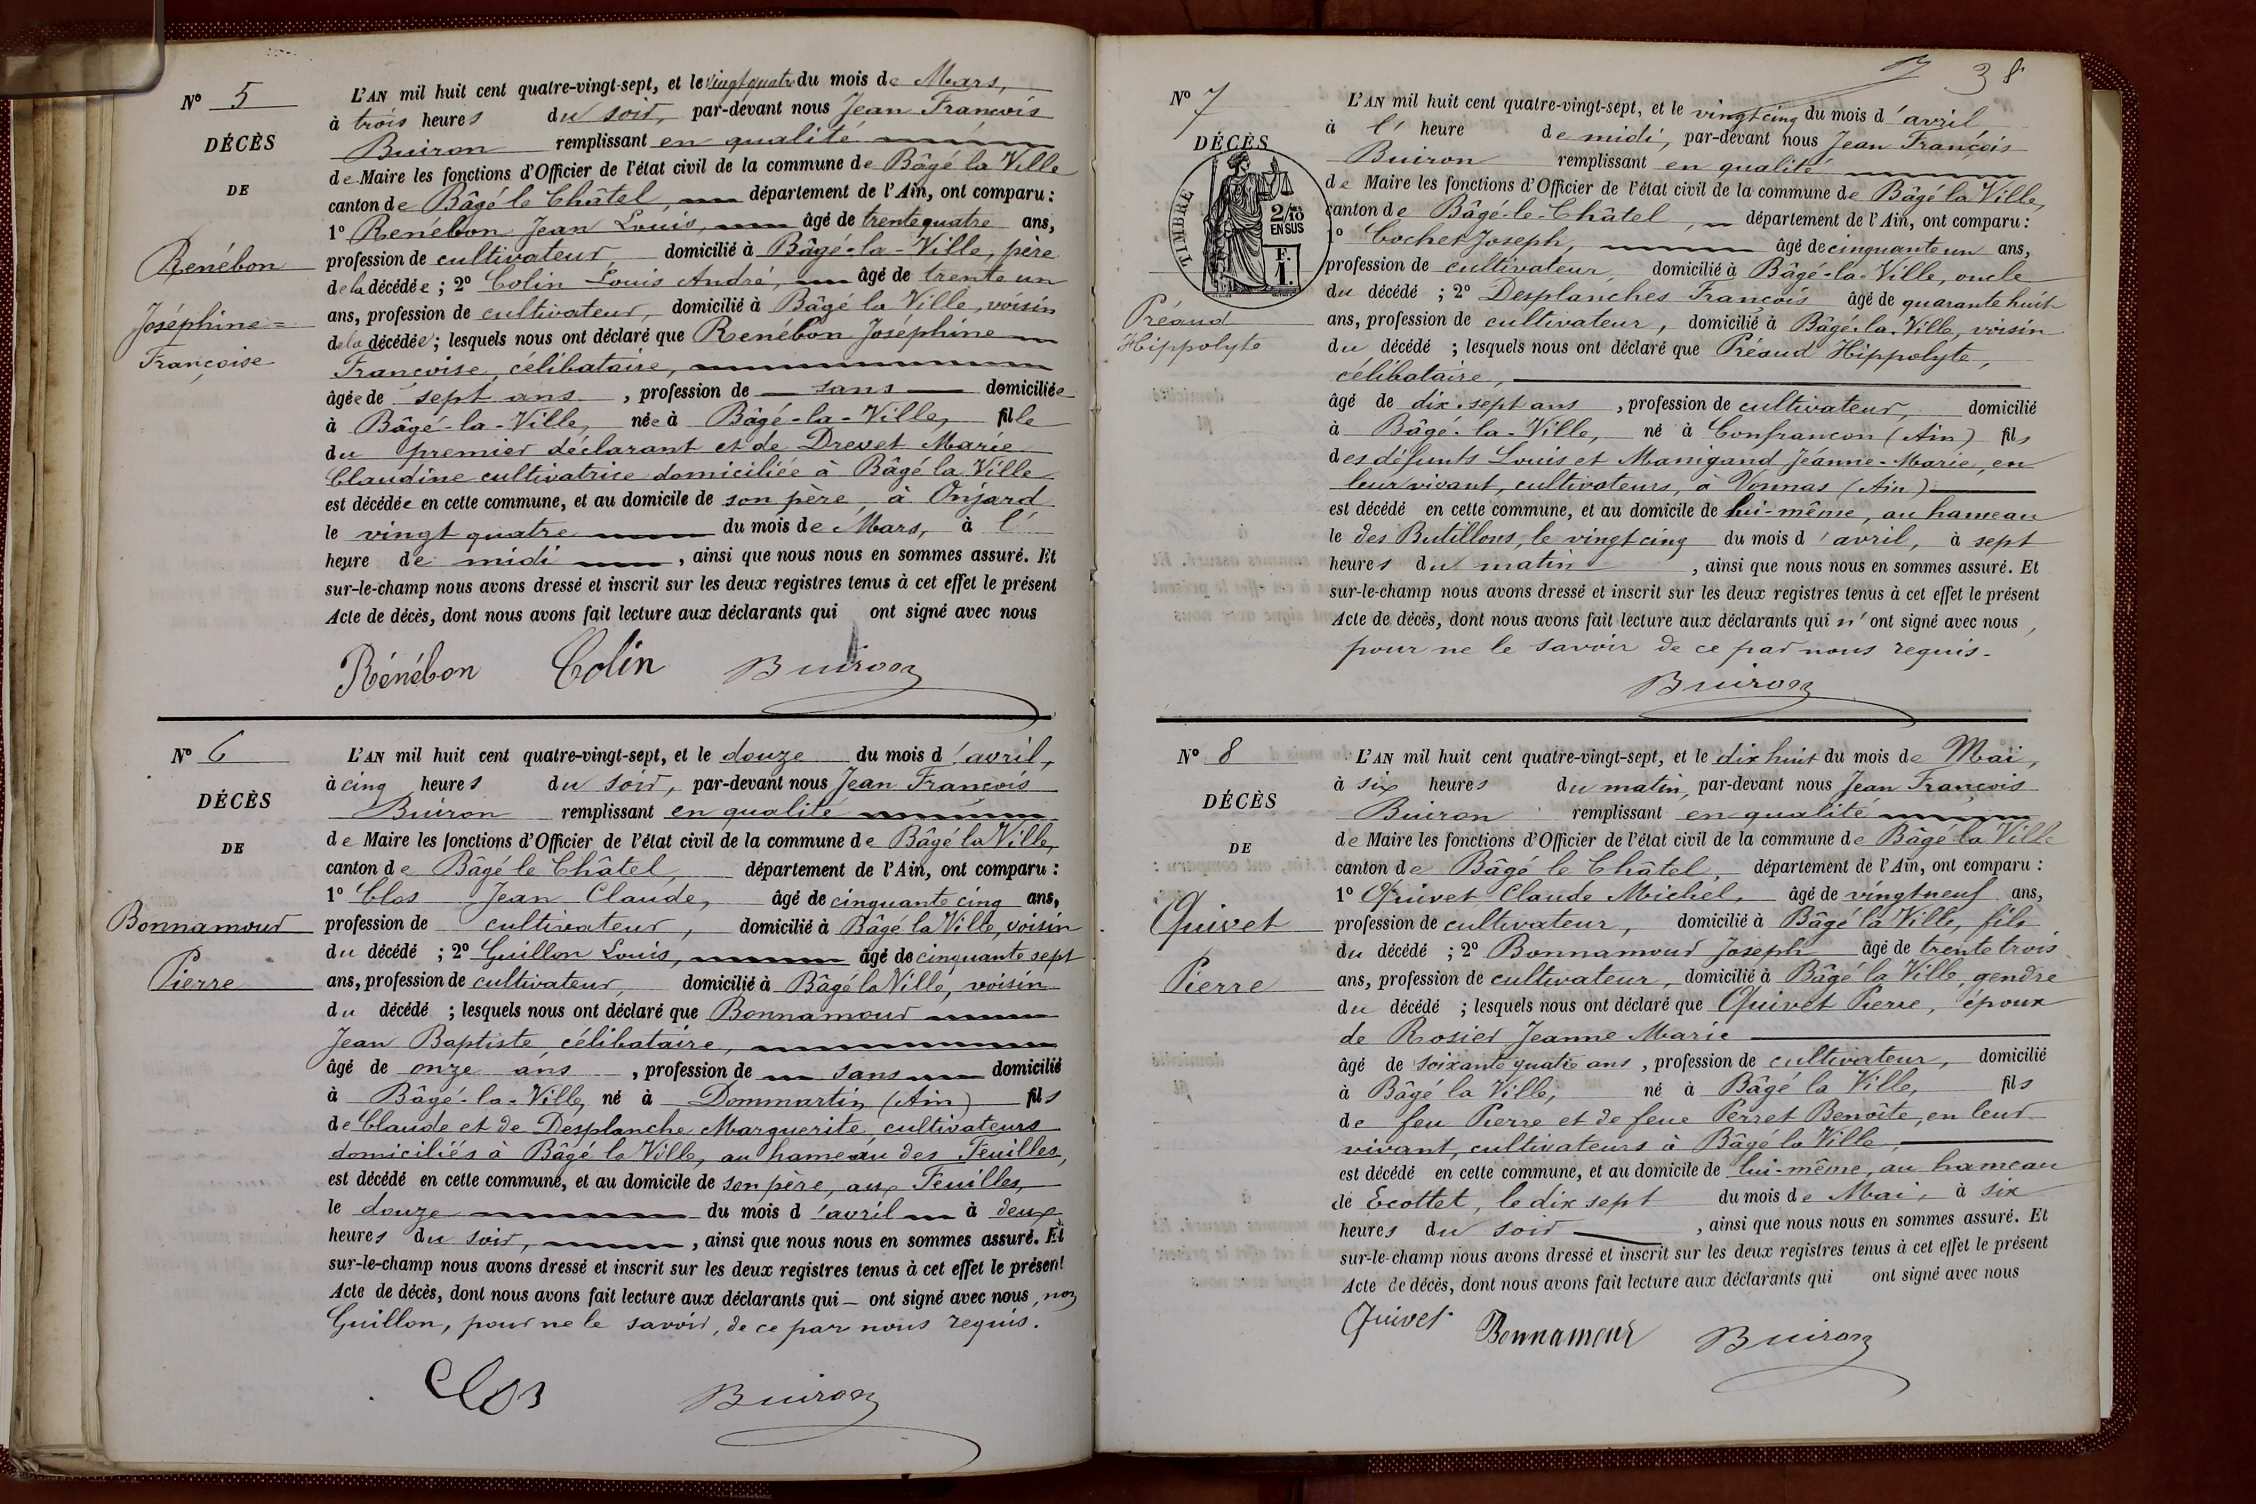 N° 5
DÉCÈS
DE
Renébon
Joséphine=
Françoise
L'AN mil huit cent quatre-vingt-sept, et le vingt quatre du mois de Mars,
à trois heures du soir, par-devant nous Jean François
Buiron remplissant en qualité
de Maire les fonctions d'Officier de l'état civil de la commune de Bâgé la Ville
canton de Bâgé le Châtel, département de l'Ain, ont comparu :
1° Renébon Jean Louis, âgé de trente quatre ans,
profession de cultivateur, domicilié à Bâgé-la-Ville, père
de la décédée ; 2° Colin Louis André, âgé de trente un
ans, profession de cultivateur, domicilié à Bâgé la Ville, voisin
de la décédée ; lesquels nous ont déclaré que Renébon Joséphine
Françoise, célibataire,
âgée de sept ans, profession de sans domiciliée
à Bâgé-la-Ville, née à Bâgé-la-Ville, fille
du premier déclarant et de Drevet Marie
Claudine cultivatrice domiciliée à Bâgé la Ville
est décédée en cette commune, et au domicile de son père, à Onjard
le vingt quatre du mois de Mars, à l'
heure de midi, ainsi que nous nous en sommes assuré. Et
sur-le-champ nous avons dressé et inscrit sur les deux registres tenus à cet effet le présent
Acte de décès, dont nous avons fait lecture aux déclarants qui ont signé avec nous
Rénébon Colin Buiron
N° 6
DÉCÈS
DE
Bonnamour
Pierre
L'AN mil huit cent quatre-vingt-sept, et le douze du mois d'avril,
à cinq heures du soir, par-devant nous Jean François
Buiron remplissant en qualité
de Maire les fonctions d'Officier de l'état civil de la commune de Bâgé la Ville,
canton de Bâgé le Châtel, département de l'Ain, ont comparu :
1° Clos Jean Claude, âgé de cinquante cinq ans,
profession de cultivateur, domicilié à Bâgé la Ville, voisin
du décédé ; 2° Guillon Louis, âgé de cinquante sept
ans, profession de cultivateur, domicilié à Bâgé la Ville, voisin
du décédé ; lesquels nous ont déclaré que Bonnamour
Jean Baptiste, célibataire,
âgé de onze ans, profession de sans domicilié
à Bâgé-la-Ville, né à Dommartin (Ain) fils
de Claude et de Desplanche Marguerite, cultivateurs
domiciliés à Bâgé la Ville, au hameau des Feuilles,
est décédé en cette commune, et au domicile de son père, aux Feuilles,
le douze du mois d'avril à deux
heures du soir, ainsi que nous nous en sommes assuré. Et
sur-le-champ nous avons dressé et inscrit sur les deux registres tenus à cet effet le présent
Acte de décès, dont nous avons fait lecture aux déclarants qui – ont signé avec nous, non
Guillon, pour ne le savoir, de ce par nous requis.
Clos Buiron
38
N° 7
DÉCÈS
TIMBRE
2/10 EN SUS
F. 1.
Préaud
Hippolyte
L'AN mil huit cent quatre-vingt-sept, et le vingt cinq du mois d'avril
à l' heure de midi, par-devant nous Jean François
Buiron remplissant en qualité
de Maire les fonctions d'Officier de l'état civil de la commune de Bâgé la Ville,
canton de Bâgé-le-Châtel, département de l'Ain, ont comparu :
1° Cochet Joseph, âgé de cinquante un ans,
profession de cultivateur, domicilié à Bâgé-la-Ville, oncle
du décédé ; 2° Desplanches François âgé de quarante huit
ans, profession de cultivateur, domicilié à Bâgé-la-Ville, voisin
du décédé ; lesquels nous ont déclaré que Préaud Hippolyte,
célibataire,
âgé de dix-sept ans, profession de cultivateur, domicilié
à Bâgé-la-Ville, né à Confrançon (Ain) fils
des défunts Louis et Manigand Jeanne-Marie, en
leur vivant, cultivateurs, à Vonnas (Ain)
est décédé en cette commune, et au domicile de lui-même, au hameau
le des Butillons, le vingt cinq du mois d'avril, à sept
heures du matin, ainsi que nous nous en sommes assuré. Et
sur-le-champ nous avons dressé et inscrit sur les deux registres tenus à cet effet le présent
Acte de décès, dont nous avons fait lecture aux déclarants qui n'ont signé avec nous,
pour ne le savoir de ce par nous requis.
Buiron
N° 8
DÉCÈS
DE
Quivet
Pierre
L'AN mil huit cent quatre-vingt-sept, et le dix huit du mois de Mai,
à six heures du matin, par-devant nous Jean François
Buiron remplissant en qualité
de Maire les fonctions d'Officier de l'état civil de la commune de Bâgé la Ville
canton de Bâgé le Châtel, département de l'Ain, ont comparu :
1° Quivet Claude Michel, âgé de vingt neuf ans,
profession de cultivateur, domicilié à Bâgé la Ville, fils
du décédé ; 2° Bonnamour Joseph âgé de trente trois
ans, profession de cultivateur, domicilié à Bâgé la Ville, gendre
du décédé ; lesquels nous ont déclaré que Quivet Pierre, époux
de Rosier Jeanne Marie
âgé de soixante quatre ans, profession de cultivateur, domicilié
à Bâgé la Ville, né à Bâgé la Ville, fils
de feu Pierre et de feue Perret Benoîte, en leur
vivant, cultivateurs à Bâgé la Ville,
est décédé en cette commune, et au domicile de lui-même, au hameau
de Ecottet, le dix sept du mois de Mai, à six
heures du soir, ainsi que nous nous en sommes assuré. Et
sur-le-champ nous avons dressé et inscrit sur les deux registres tenus à cet effet le présent
Acte de décès, dont nous avons fait lecture aux déclarants qui ont signé avec nous
Quivet Bonnamour Buiron